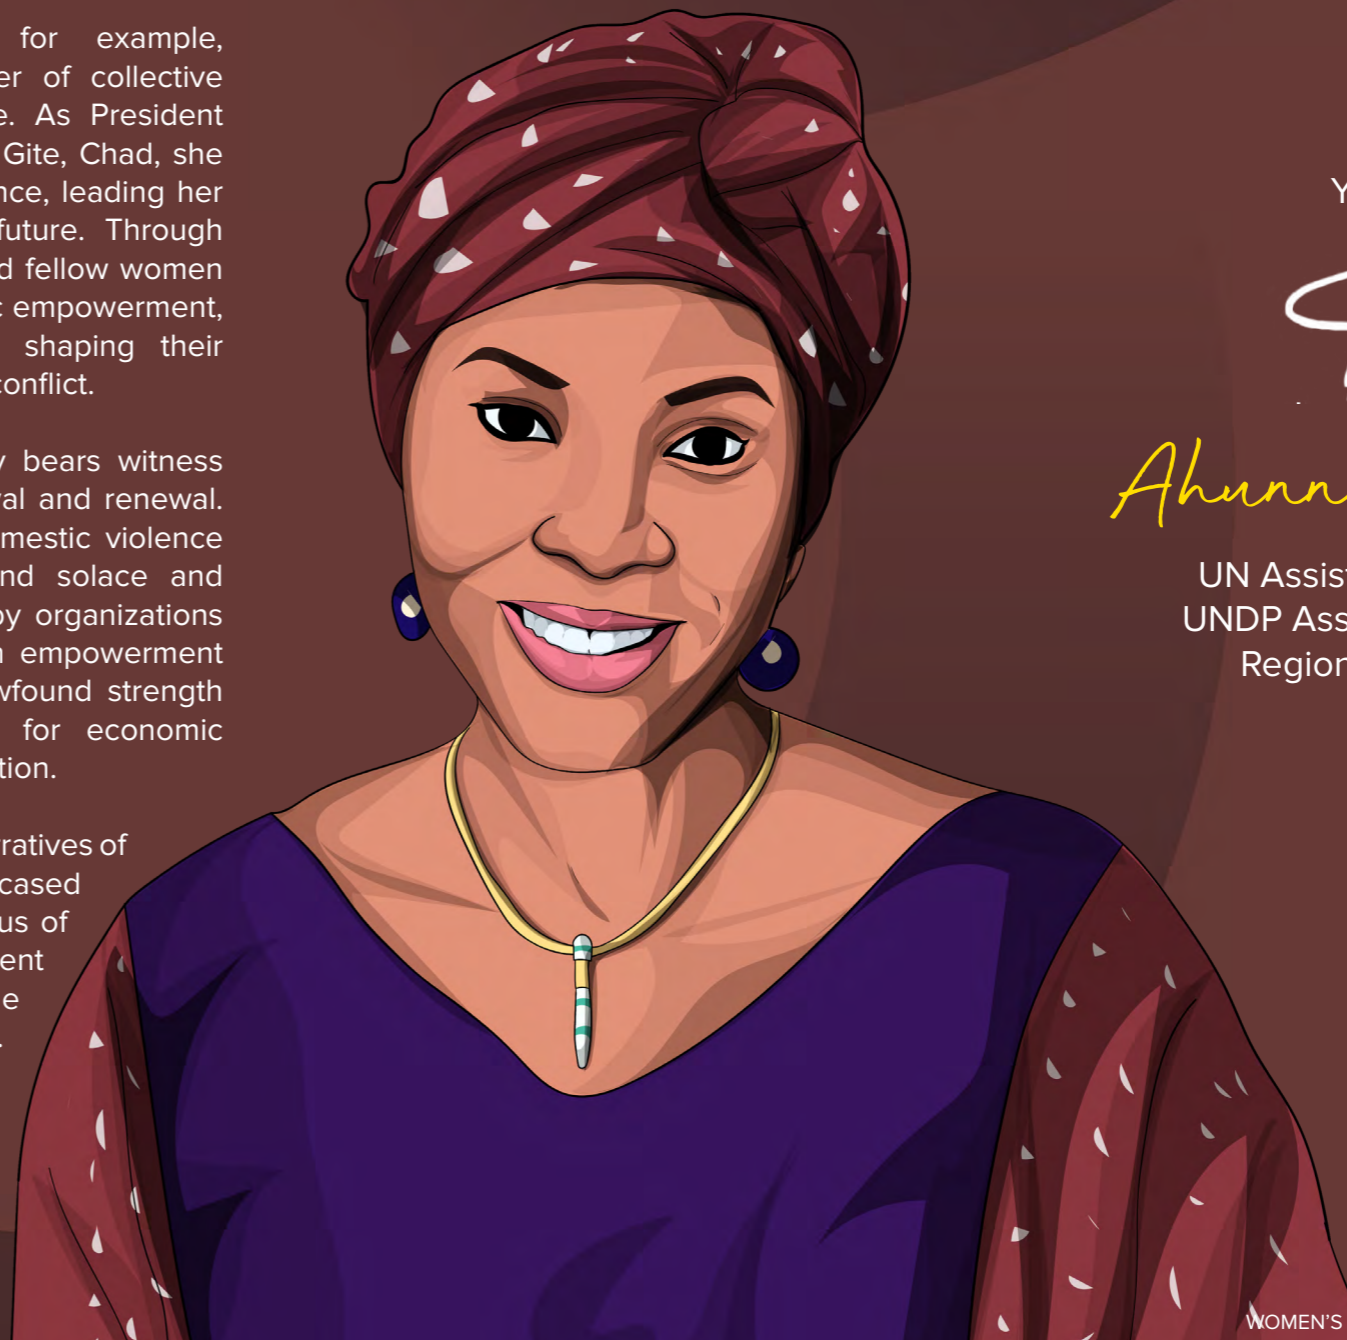 for example,
er of collective
e. As President
Gite, Chad, she
nce, leading her
future. Through
d fellow women
c empowerment,
shaping their
conflict.
y bears witness
val and renewal.
mestic violence
nd solace and
by organizations
n empowerment
wfound strength
for economic
tion.
ratives of
cased
us of
ent
e
.
Y
Ahunn
UN Assist
UNDP Ass
Region
WOMEN'S